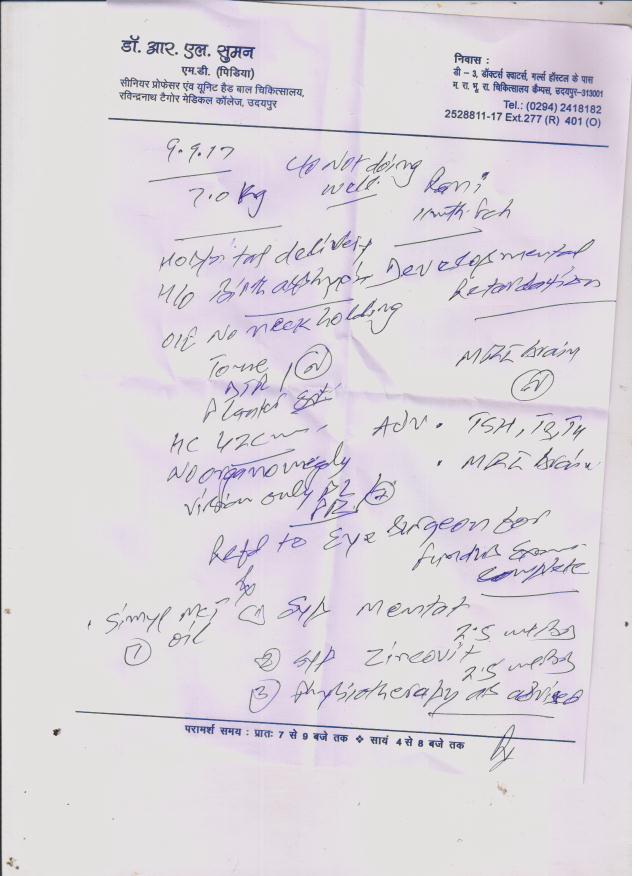 डॉ. आर. एल. सुमन
एम.डी. (पिडिया)
सीनियर प्रोफेसर एंव यूनिट हैड बाल चिकित्सालय,
रविन्द्रनाथ टैगोर मेडिकल कॉलेज, उदयपुर
निवास :
डी - 3, डॉक्टर्स क्वाटर्स, गर्ल्स हॉस्टल के पास
म. रा. भू. रा. चिकित्सालय कैम्पस, उदयपुर-313001
Tel.: (0294) 2418182
2528811-17 Ext.277 (R) 401 (O)
9.9.17
C/o Not doing well
7.0 kg
Hospital delivery
H/o Birth asphyxia Developmental Retardation
O/E No neck holding
Tone
DTR
MRI Brain
HC 42 cm
Adv. TSH, T3, T4
No organomegaly
. MRI Brain
vision only
Refd to Eye Surgeon for
fundus Exam
complete
. Simyl MCT oil
①
Syp Mentat
2.5 ml BD
② Syp Zincovit
2.5 ml BD
③ Physiotherapy as advised
परामर्श समय : प्रातः 7 से 9 बजे तक ❖ सायं 4 से 8 बजे तक